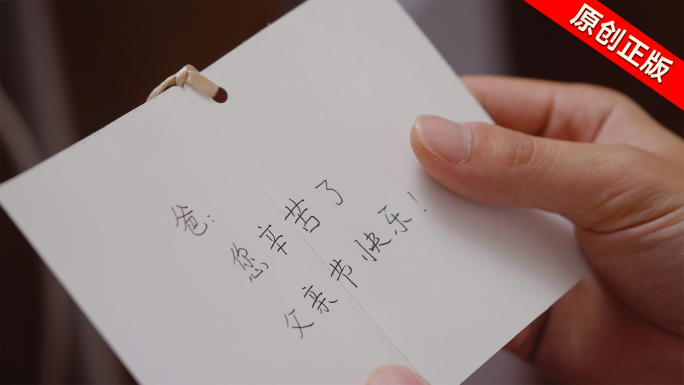 原创正版
爸:
您辛苦了
父亲节快乐!